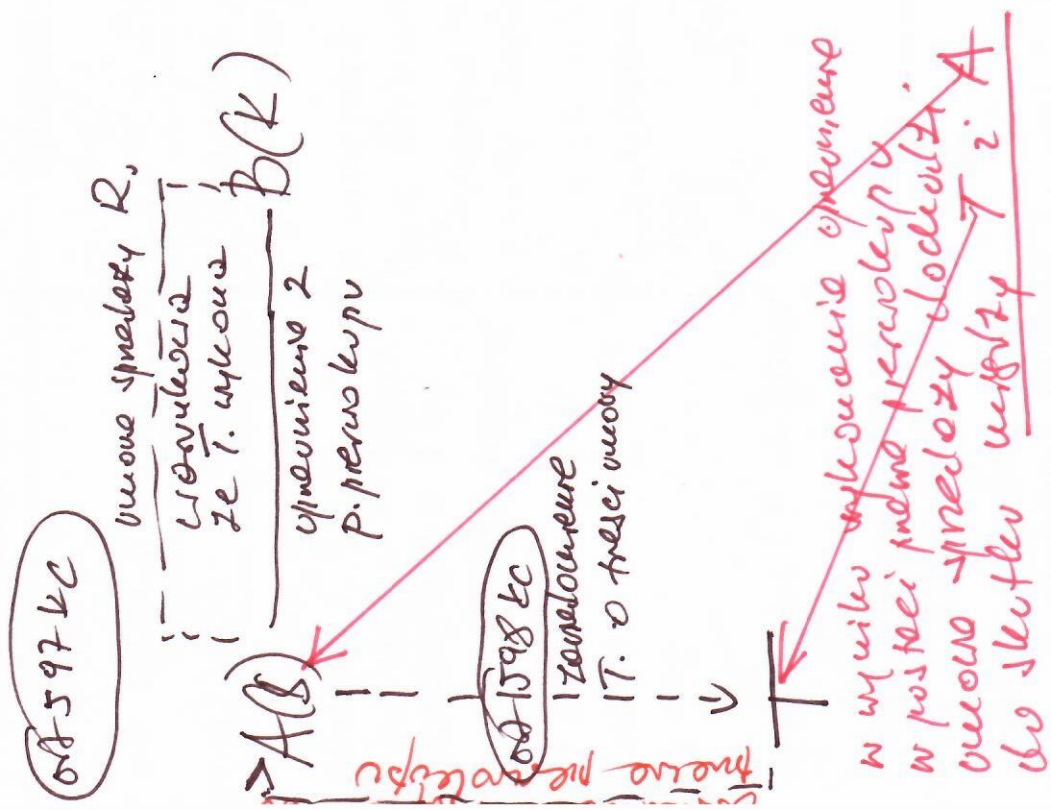 art 597 KC
umowa sprzedaży R.
warunkowa
że T. wykona
A(S)
B(K)
uprawnienie z
p. pierwokupu
art 598 KC
zawiadomienie
T. o treści umowy
T
prawo pierwokupu
w wyniku wykonania uprawnienia
w postaci prawa pierwokupu
umowa sprzedaży dochodzi
do skutku między T i A